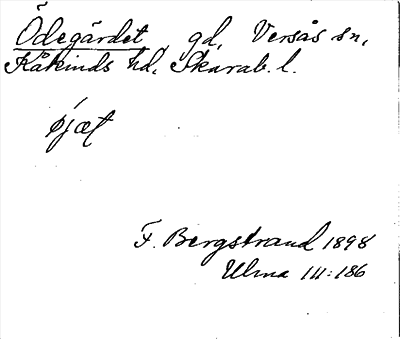 Ödegärdet gd, Versås sn,
Kåkinds hd, Skarab. l.
F. Bergstrand 1898
Ulma 111:186